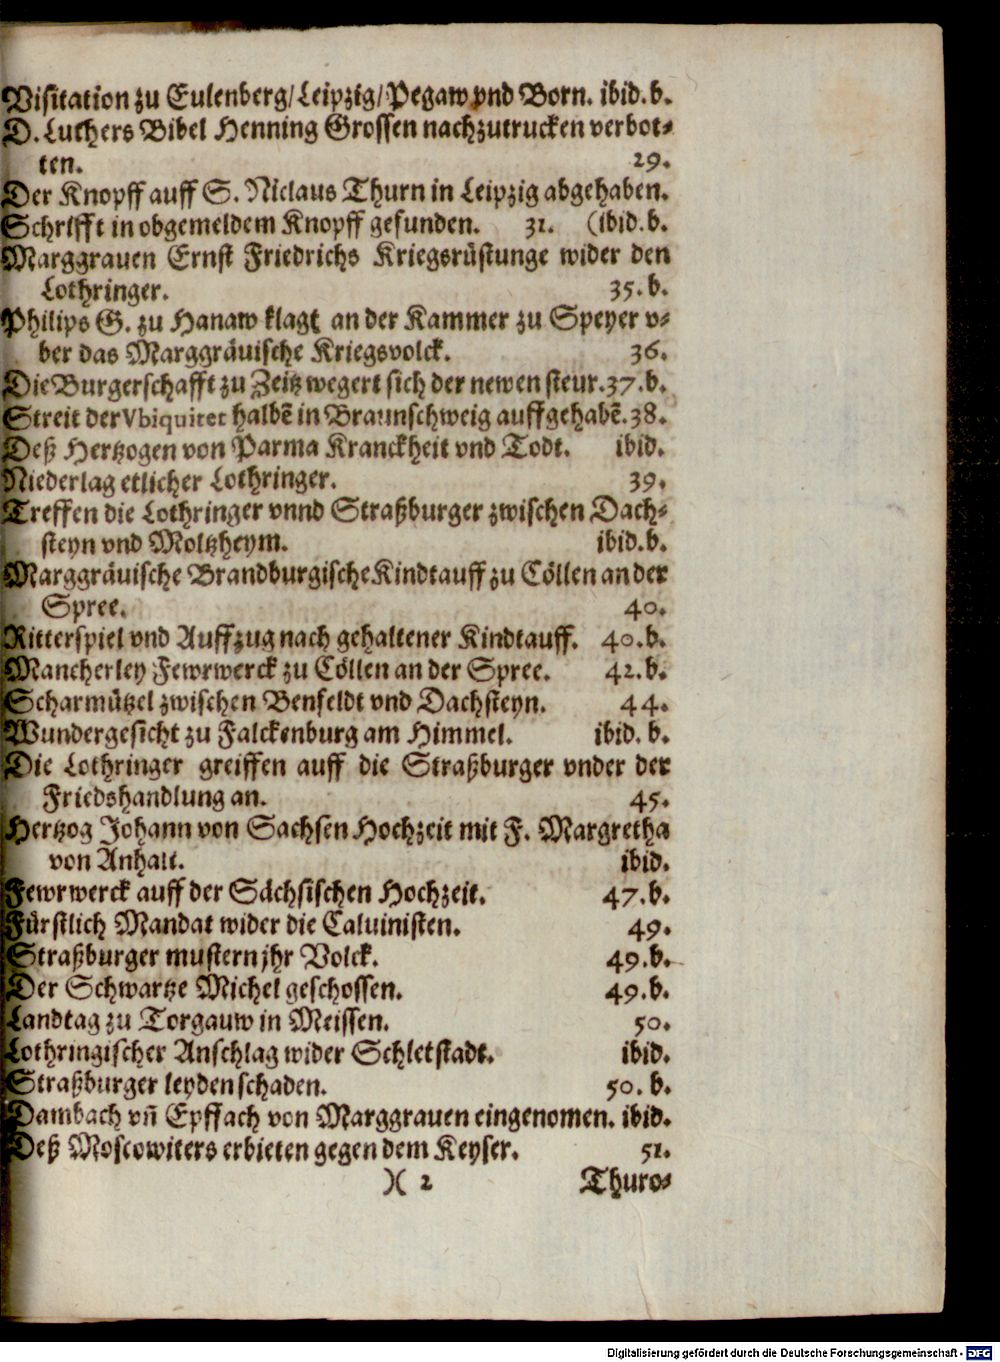 Visitation zu Eulenberg/Leipzig/Pegaw vnd Born. ibid.b.
D. Luthers Bibel Henning Grossen nachzutrucken verbot-
ten. 29.
Der Knopff auff S. Niclaus Thurn in Leipzig abgehaben.
Schrifft in obgemeldem Knopff gefunden. 31. (ibid.b.
Marggrauen Ernst Friedrichs Kriegsrüstunge wider den
Lothringer. 35.b.
Philips G. zu Hanaw klagt an der Kammer zu Speyer v-
ber das Marggräuische Kriegsvolck. 36.
Die Burgerschafft zu Zeitz wegert sich der newen steur. 37.b.
Streit der Vbiquitet halbẽ in Braunschweig auffgehabẽ. 38.
Deß Hertzogen von Parma Kranckheit vnd Todt. ibid.
Niederlag etlicher Lothringer. 39.
Treffen die Lothringer vnnd Straßburger zwischen Dach-
steyn vnd Moltzheym. ibid.b.
Marggräuische Brandburgische Kindtauff zu Cöllen an der
Spree. 40.
Ritterspiel vnd Auffzug nach gehaltener Kindtauff. 40.b.
Mancherley Fewrwerck zu Cöllen an der Spree. 42.b.
Scharmützel zwischen Benfeldt vnd Dachsteyn. 44.
Wundergesicht zu Falckenburg am Himmel. ibid. b.
Die Lothringer greiffen auff die Straßburger vnder der
Friedshandlung an. 45.
Hertzog Johann von Sachsen Hochzeit mit F. Margretha
von Anhalt. ibid.
Fewrwerck auff der Sächsischen Hochzeit. 47.b.
Fürstlich Mandat wider die Caluinisten. 49.
Straßburger mustern jhr Volck. 49.b.
Der Schwartze Michel geschossen. 49.b.
Landtag zu Torgauw in Meissen. 50.
Lothringischer Anschlag wider Schletstadt. ibid.
Straßburger leyden schaden. 50. b.
Dambach vñ Epffach von Marggrauen eingenomen. ibid.
Deß Moscowiters erbieten gegen dem Keyser. 51.
)( 2 Thuro-
Digitalisierung gefördert durch die Deutsche Forschungsgemeinschaft - DFG